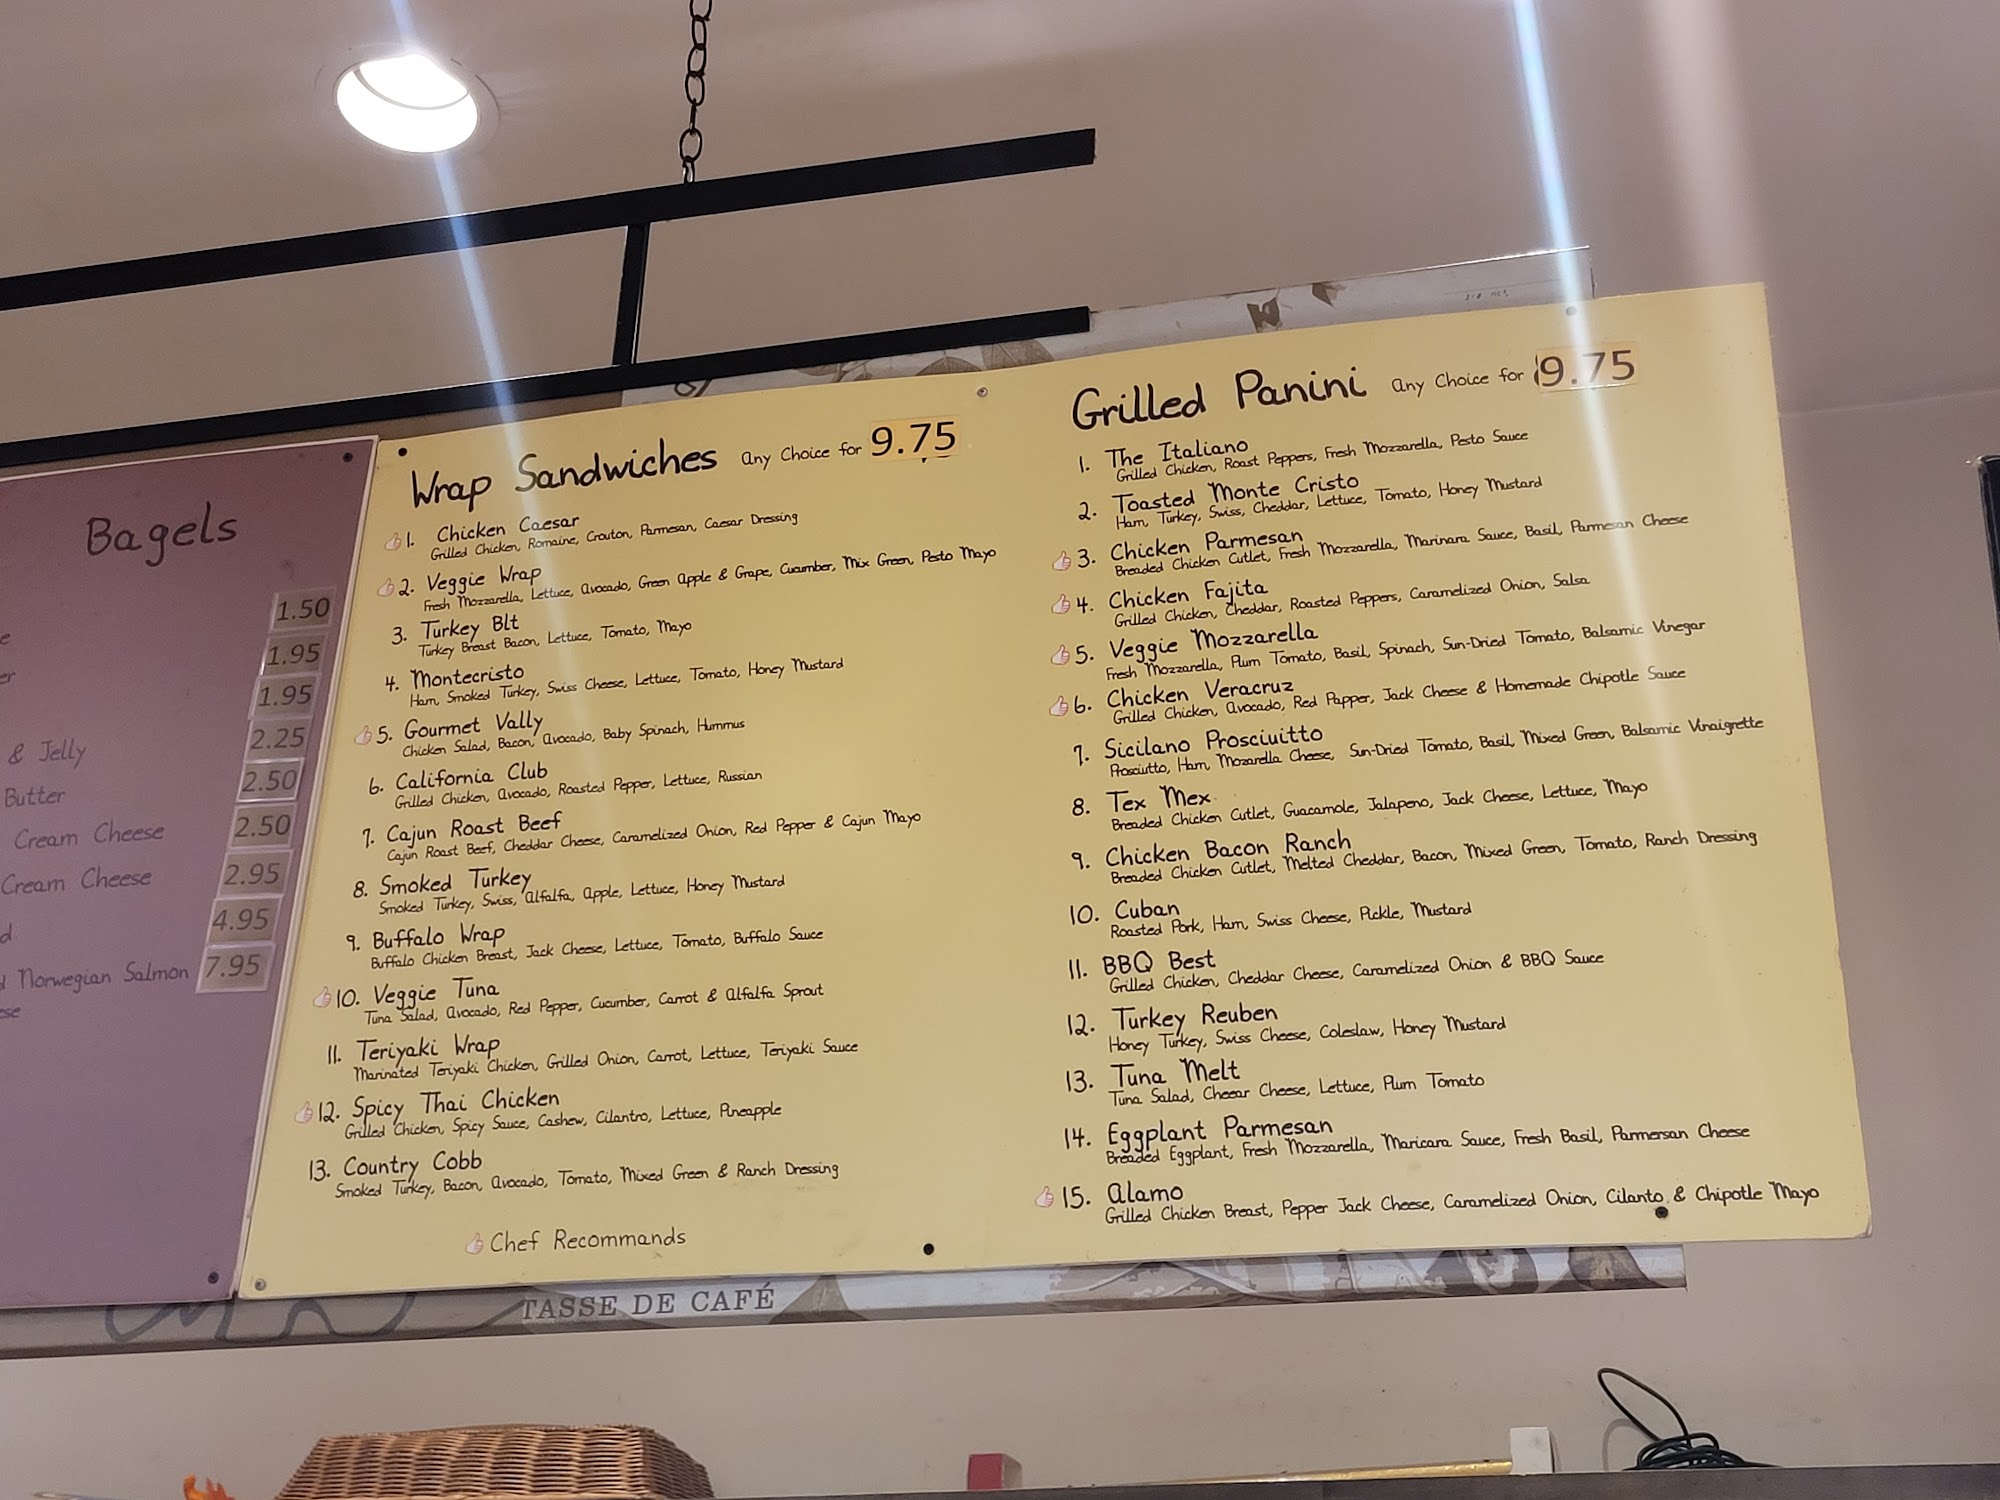 Bagels
1.50
1.95
1.95
& Jelly
2.25
Butter
2.50
Cream Cheese
2.50
Cream Cheese
2.95
4.95
Norwegian Salmon
7.95
Wrap Sandwiches any Choice for 9.75
1. Chicken Caesar
Grilled Chicken, Romaine, Crouton, Parmesan, Caesar Dressing
2. Veggie Wrap
Fresh Mozzarella, Lettuce, avocado, Green apple & Grape, Cucumber, Mix Green, Pesto Mayo
3. Turkey Blt
Turkey Breast Bacon, Lettuce, Tomato, Mayo
4. Montecristo
Ham, Smoked Turkey, Swiss Cheese, Lettuce, Tomato, Honey Mustard
5. Gourmet Vally
Chicken Salad, Bacon, avocado, Baby Spinach, Hummus
6. California Club
Grilled Chicken, avocado, Roasted Pepper, Lettuce, Russian
7. Cajun Roast Beef
Cajun Roast Beef, Cheddar Cheese, Caramelized Onion, Red Pepper & Cajun Mayo
8. Smoked Turkey
Smoked Turkey, Swiss, alfalfa, apple, Lettuce, Honey Mustard
9. Buffalo Wrap
Buffalo Chicken Breast, Jack Cheese, Lettuce, Tomato, Buffalo Sauce
10. Veggie Tuna
Tuna Salad, avocado, Red Pepper, Cucumber, Carrot & alfalfa Sprout
11. Teriyaki Wrap
Marinated Teriyaki Chicken, Grilled Onion, Carrot, Lettuce, Teriyaki Sauce
12. Spicy Thai Chicken
Grilled Chicken, Spicy Sauce, Cashew, Cilantro, Lettuce, Pineapple
13. Country Cobb
Smoked Turkey, Bacon, avocado, Tomato, Mixed Green & Ranch Dressing
Chef Recommands
Grilled Panini any Choice for 9.75
1. The Italiano
Grilled Chicken, Roast Peppers, Fresh Mozzarella, Pesto Sauce
2. Toasted Monte Cristo
Ham, Turkey, Swiss, Cheddar, Lettuce, Tomato, Honey Mustard
3. Chicken Parmesan
Breaded Chicken Cutlet, Fresh Mozzarella, Marinara Sauce, Basil, Parmesan Cheese
4. Chicken Fajita
Grilled Chicken, Cheddar, Roasted Peppers, Caramelized Onion, Salsa
5. Veggie Mozzarella
Fresh Mozzarella, Plum Tomato, Basil, Spinach, Sun-Dried Tomato, Balsamic Vinegar
6. Chicken Veracruz
Grilled Chicken, avocado, Red Papper, Jack Cheese & Homemade Chipotle Sauce
7. Sicilano Prosciuitto
Prosciutto, Ham, Mozarella Cheese, Sun-Dried Tomato, Basil, Mixed Green, Balsamic Vinaigrette
8. Tex Mex
Breaded Chicken Cutlet, Guacamole, Jalapeno, Jack Cheese, Lettuce, Mayo
9. Chicken Bacon Ranch
Breaded Chicken Cutlet, Melted Cheddar, Bacon, Mixed Green, Tomato, Ranch Dressing
10. Cuban
Roasted Pork, Ham, Swiss Cheese, Pickle, Mustard
11. BBQ Best
Grilled Chicken, Cheddar Cheese, Caramelized Onion & BBQ Sauce
12. Turkey Reuben
Honey Turkey, Swiss Cheese, Coleslaw, Honey Mustard
13. Tuna Melt
Tuna Salad, Cheear Cheese, Lettuce, Plum Tomato
14. Eggplant Parmesan
Breaded Eggplant, Fresh Mozzarella, Maricara Sauce, Fresh Basil, Parmersan Cheese
15. alamo
Grilled Chicken Breast, Pepper Jack Cheese, Caramelized Onion, Cilanto & Chipotle Mayo
TASSE DE CAFÉ